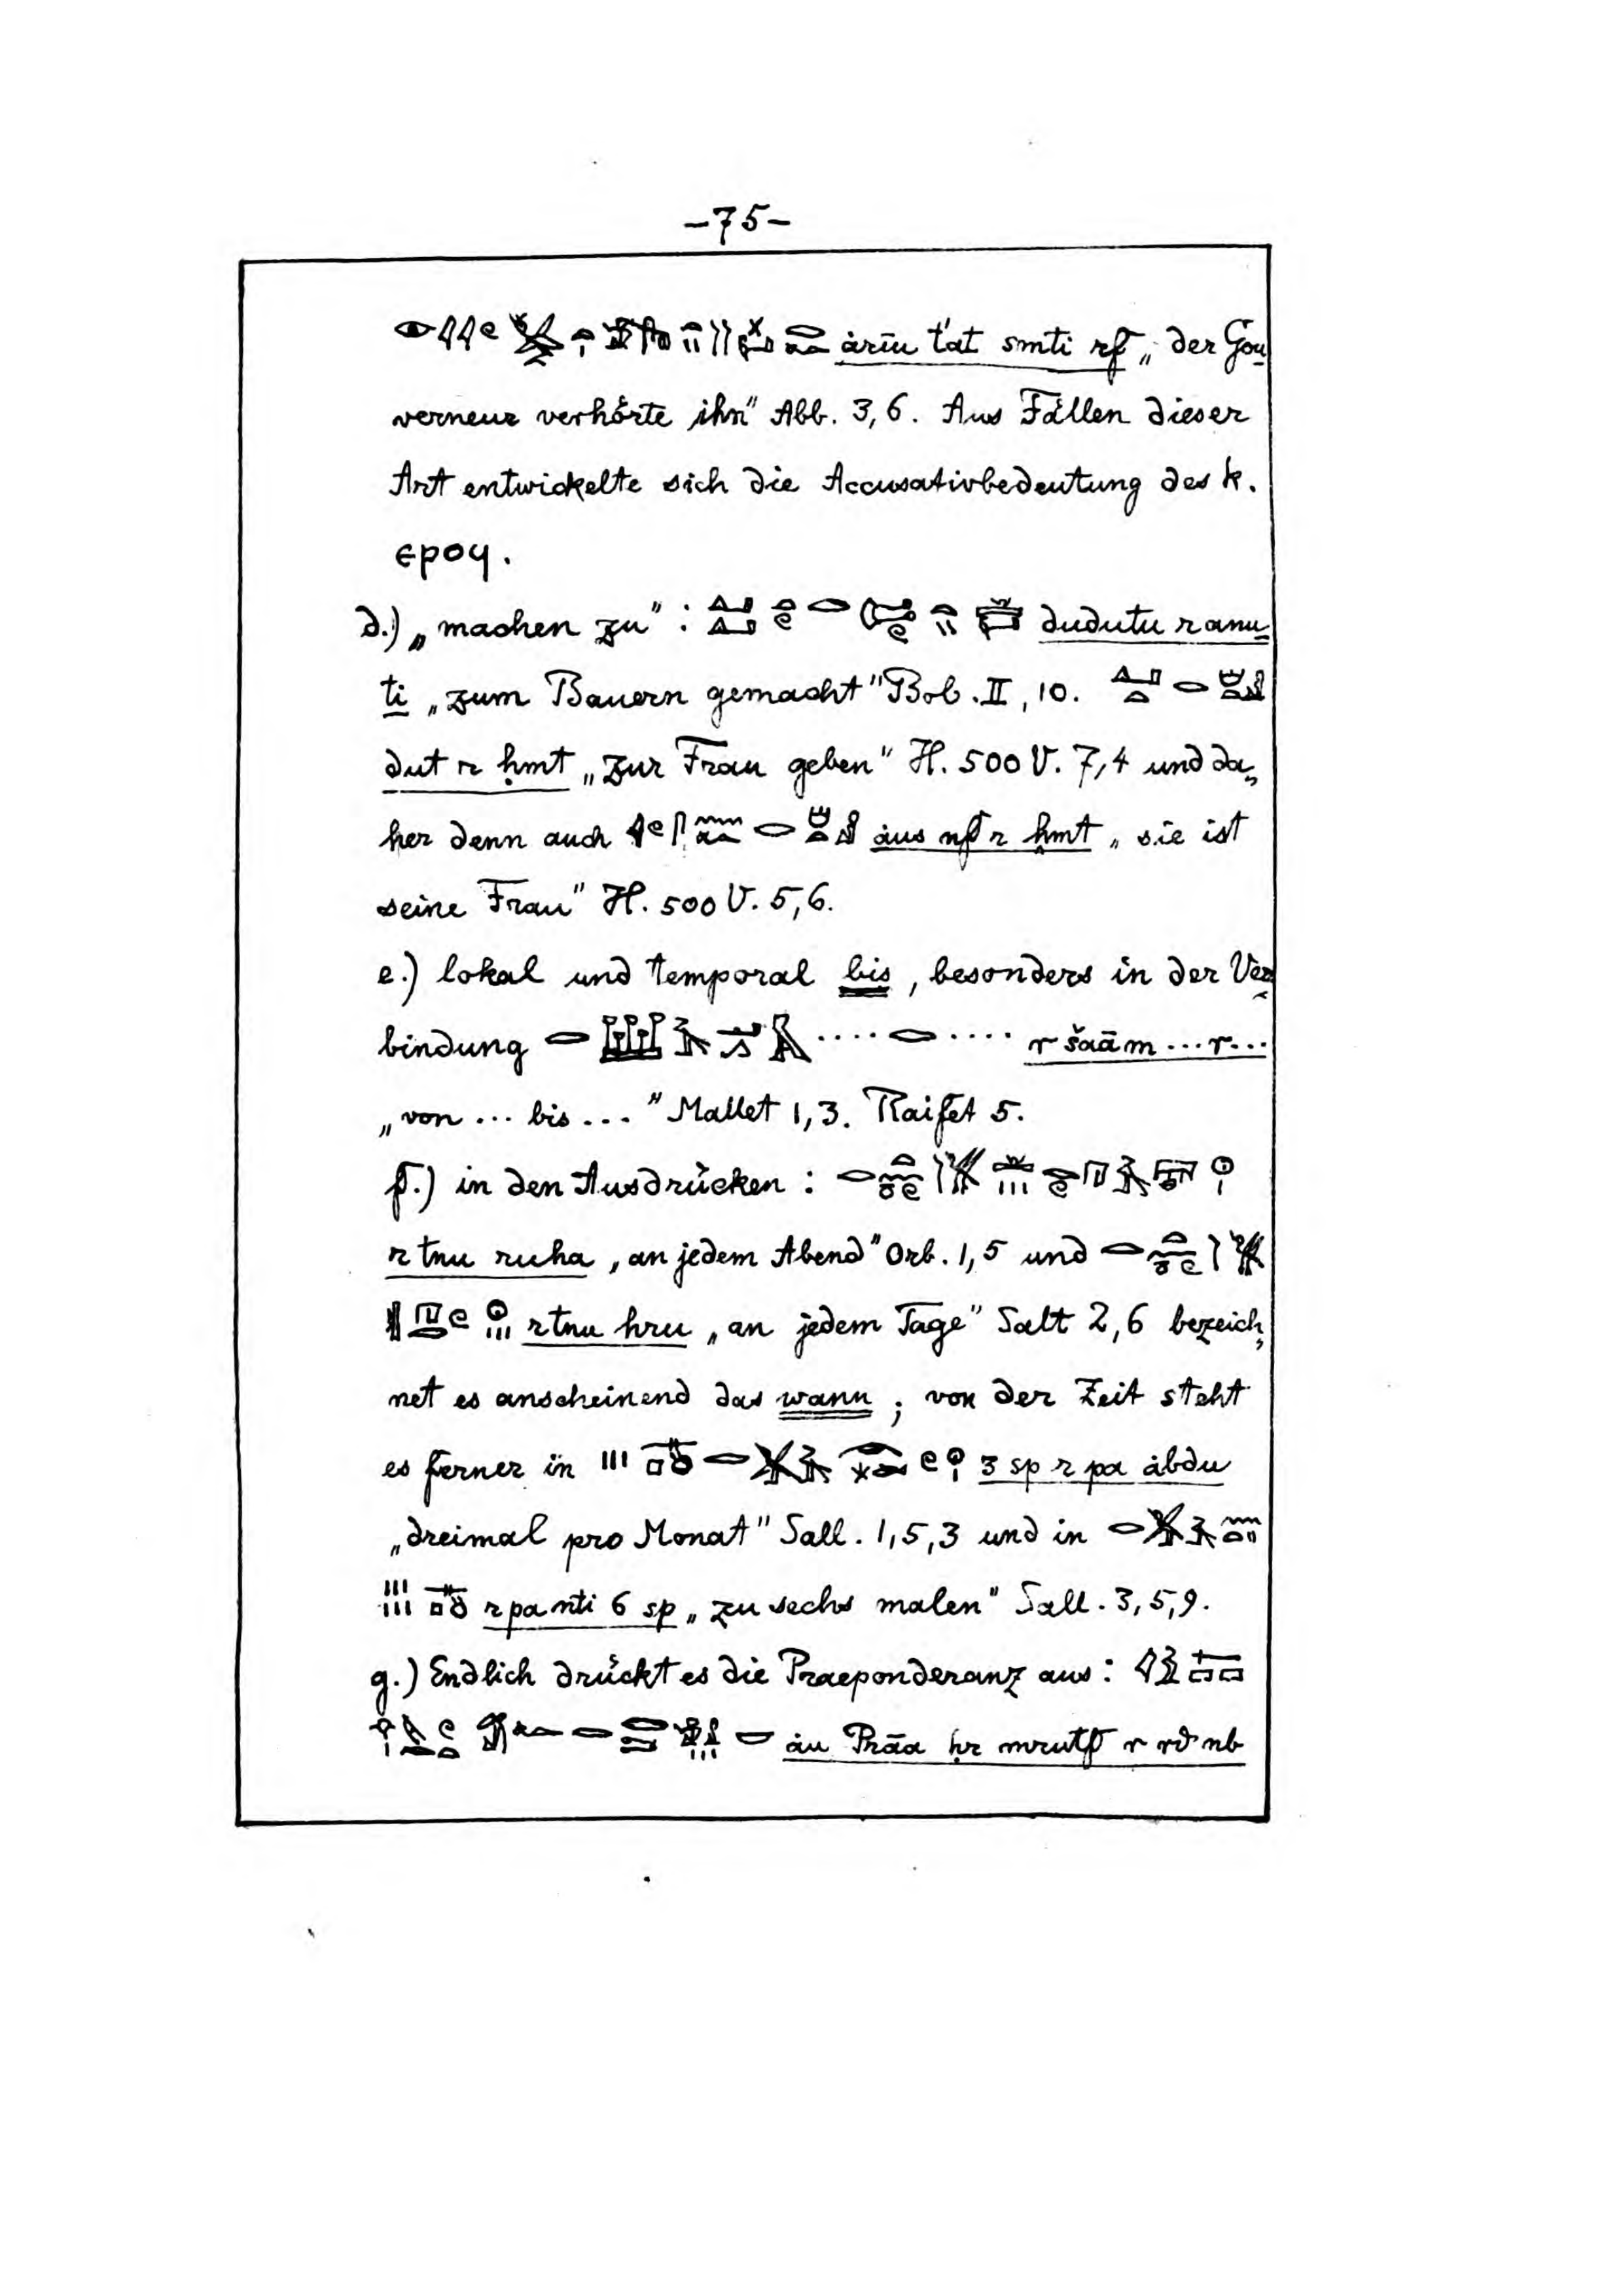 -75-
ȧrīu t'at smti rf „der Gou
verneur verhörte ihn" Abb. 3,6. Aus Fällen dieser
Art entwickelte sich die Accusativbedeutung des k.
ⲉⲣⲟϥ.
d.) „machen zu" : dudutu r anu
ti „zum Bauern gemacht" Bol. II, 10.
dut r ḥmt „zur Frau geben" H. 500 V. 7,4 und da„
her denn auch ȧus nf r ḥmt „sie ist
seine Frau" H. 500 V. 5,6.
e.) lokal und temporal bis, besonders in der Ver
bindung .... .... r šaām ... r...
„von ... bis ..." Mallet 1,3. Raifet 5.
f.) in den Ausdrücken :
r tnu ruha „an jedem Abend" Orb. 1,5 und
r tnu hru „an jedem Tage" Salt 2,6 bezeich„
net es anscheinend das wann ; von der Zeit steht
es ferner in 3 sp r pa ȧbdu
„dreimal pro Monat" Sall. 1,5,3 und in
r pa nti 6 sp „zu sechs malen" Sall. 3,5,9.
g.) Endlich drückt es die Praeponderanz aus :
ȧu Prāa ḥr mrutf r rd nb